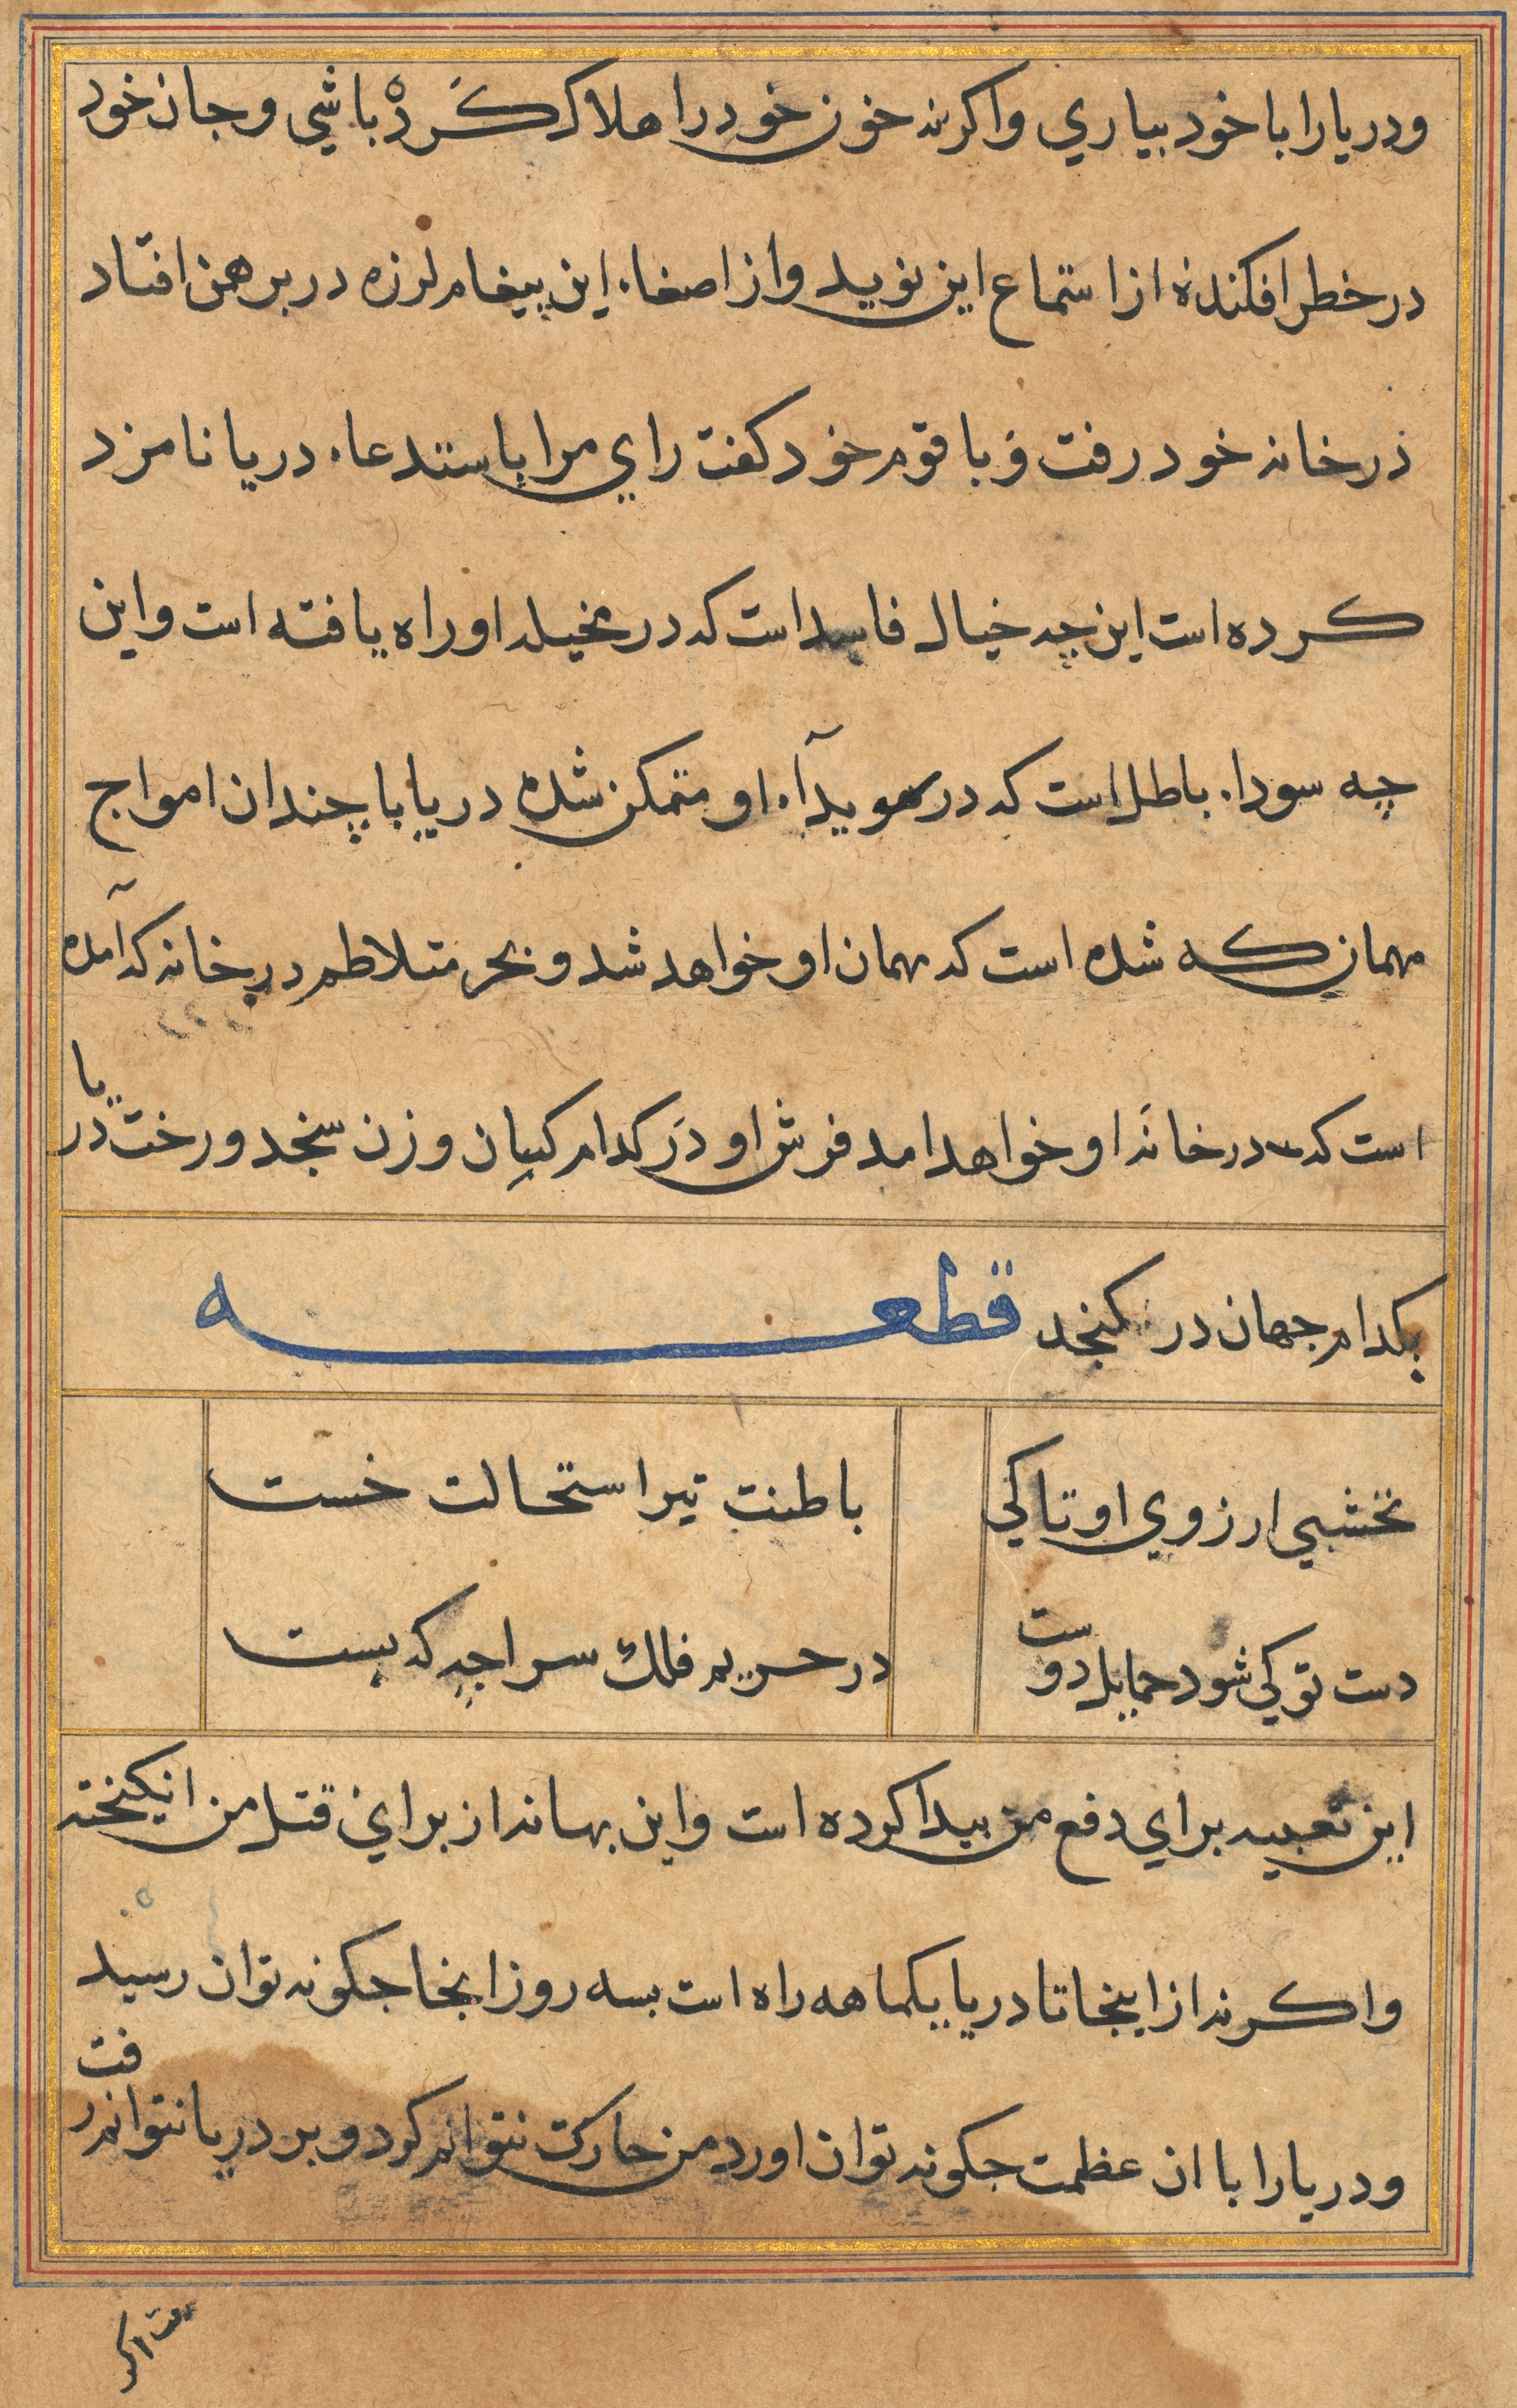 ودریا را با خود بیاري واکرنه خون خود را هلاک کَردْ باشي وجان خود
در خطر افکنده از استماع این نوید واز اصغاء این پیغام لرزه در برهمن افتاد
در خانه خود رفت و با قوم خود کفت راي مرا باستدعاء دریا نامزد
کرده است این چه خیال فاسد است که در مخیله او راه یافته است واین
چه سوداء باطل است که در سویدآء او متمکن شده دریا با چندان امواج
مهمان که شده است که مهمان او خواهد شد و بحر متلاطم در خانه که آمده
است که در خانه او خواهد امد فرش او در کدام کیان وزن سنجد ورخت دریا
بکدام جهان در کنجد قطعه
نخشبي ارزوي او تا کي
باطنت تیر استحالت خست
دست تو کي شود حمایل دوست
در حریم فلک سراچه که بست
این تعبیه براي دفع من پیدا کرده است واین بهانه از براي قتل من انکیخته
واکرنه از اینجا تا دریا یکماهه راه است بسه روز انجا چکونه توان رسید
ودریا را با ان عظمت چکونه توان اورد من حارکت نتوانم کرد و بر دریا نتوانم رفت